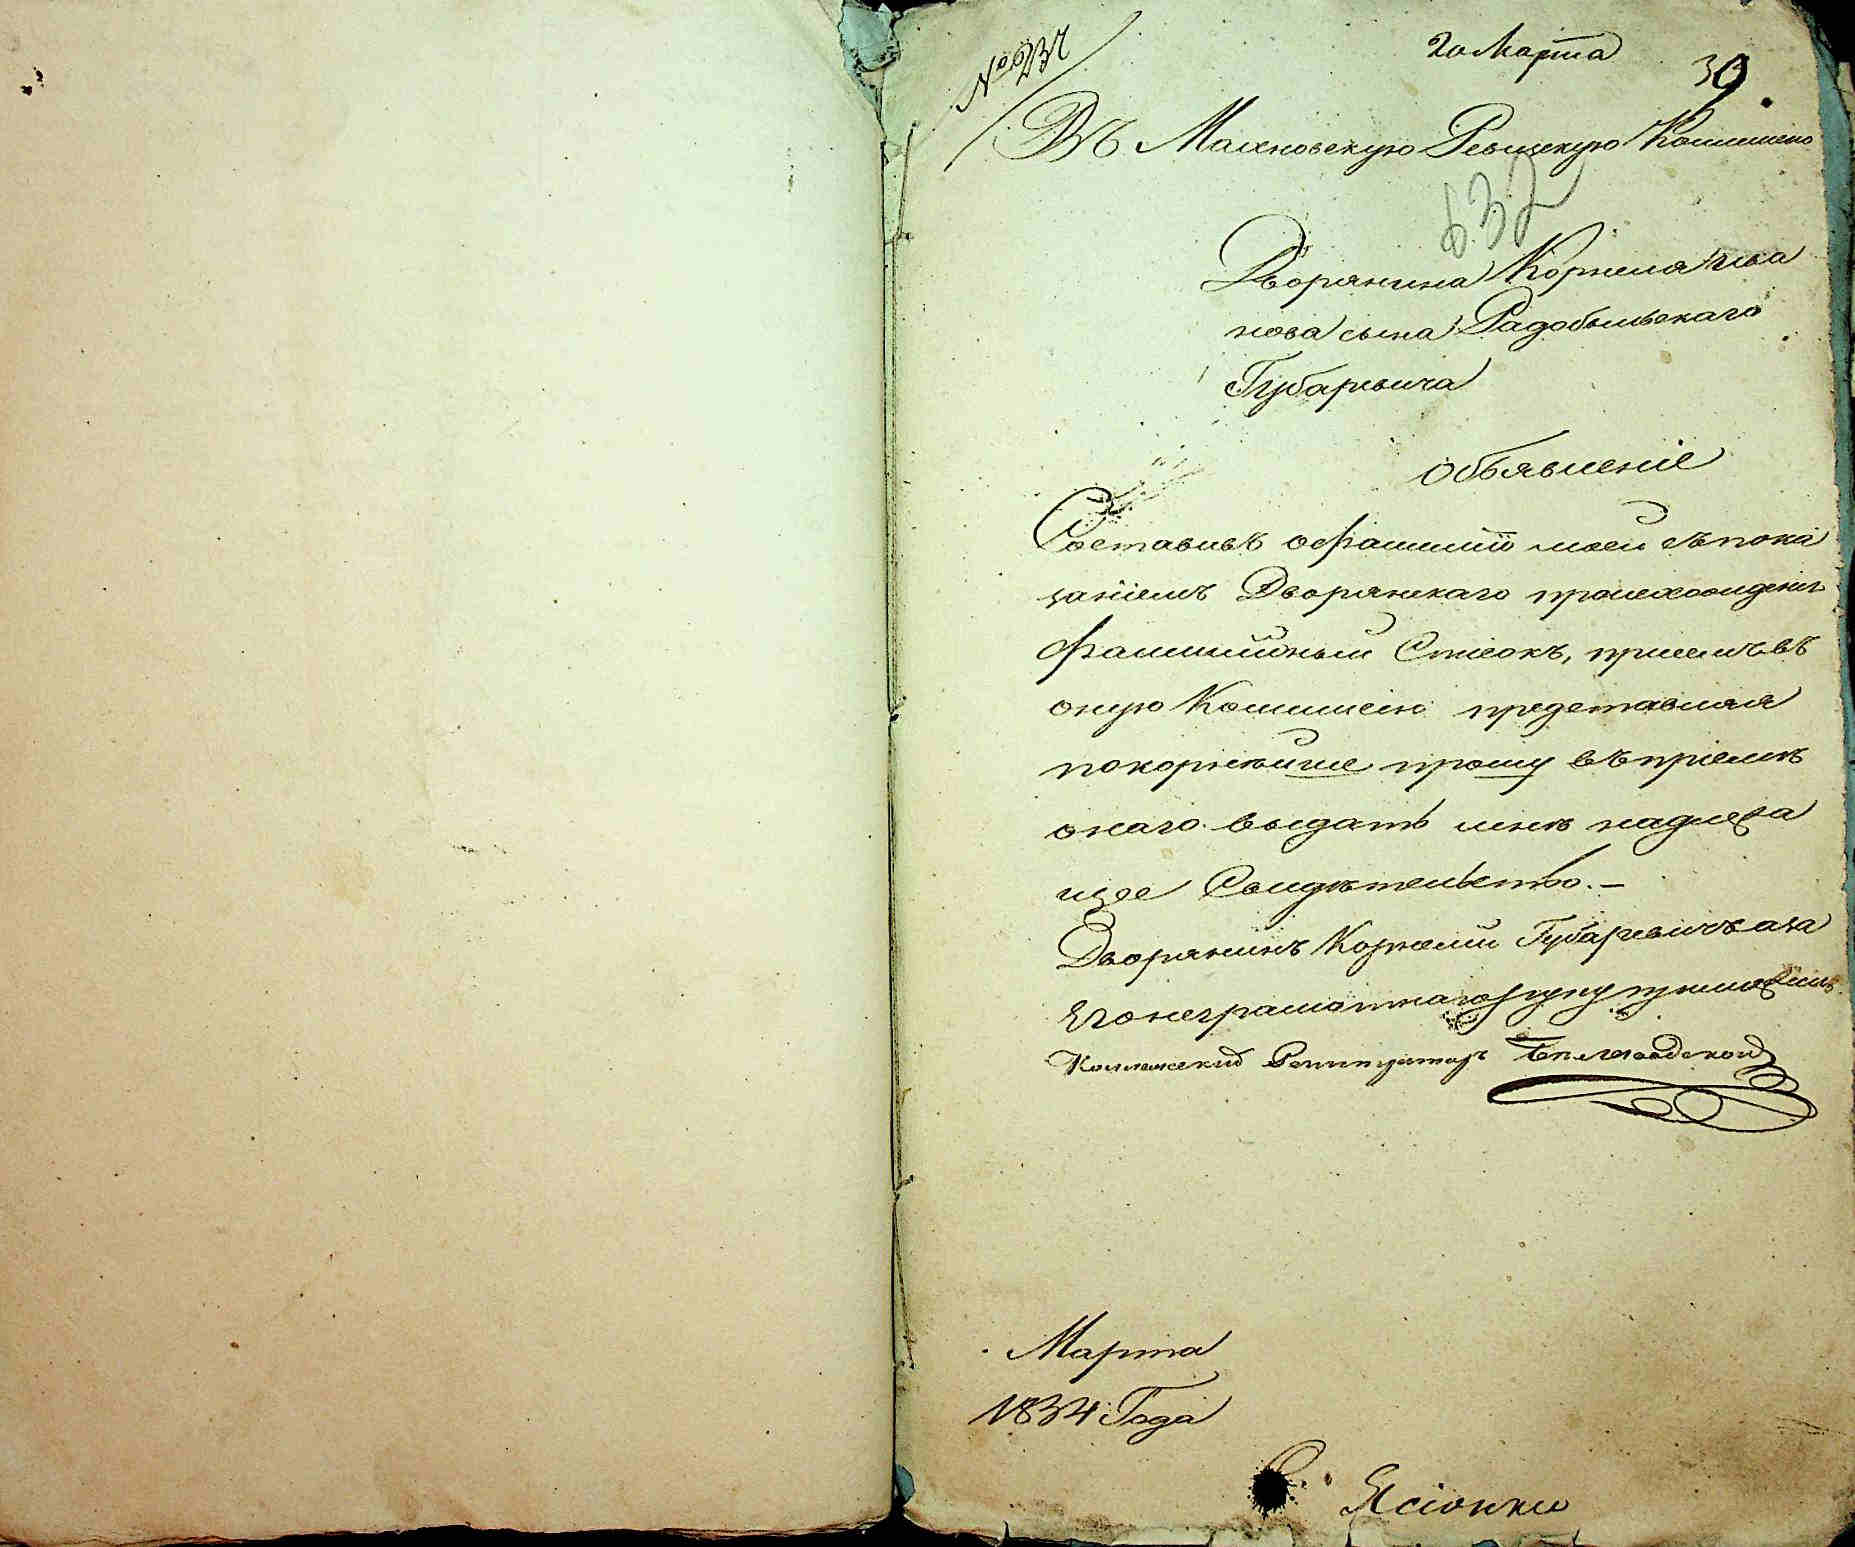 № 234
20 Марта
39
Въ Махновскую Ревизскую Комисию
632
Дворянина Корнелія Ива
нова сына Радобыльскаго
Губаревича
Объявленіе
Составивъ о Фамиліи моей съ пока
заніемъ Дворянскаго происхожденія
Фамилійный Списокъ, при семъ въ
оную Комисію представляя
покорнѣйше прошу въ пріемѣ
онаго выдать мнѣ надлежа
щее Свидѣтельство.–
Дворянинъ Корнелій Губаревичъ а за
Его неграмотнаго руку приложилъ
Коллежский Регистраторъ
Марта
1834 Года
С. Ясіонки